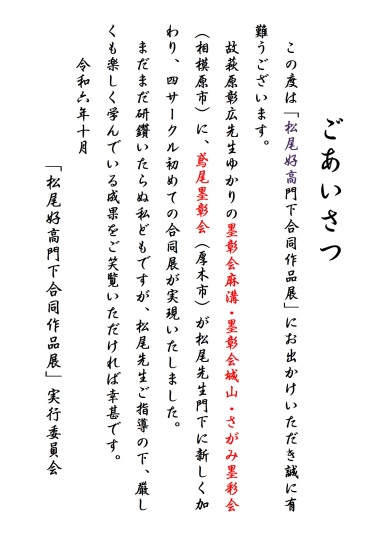 ごあいさつ
この度は「松尾好高門下合同作品展」にお出かけいただき誠に有
難うございます。
故萩原彰広先生ゆかりの墨彰会麻溝・墨彰会城山・さがみ墨彩会
（相模原市）に、鳶尾墨彰会（厚木市）が松尾先生門下に新しく加
わり、四サークル初めての合同展が実現いたしました。
まだまだ研鑽いたらぬ私どもですが、松尾先生ご指導の下、厳し
くも楽しく学んでいる成果をご笑覧いただければ幸甚です。
令和六年十月
「松尾好高門下合同作品展」実行委員会